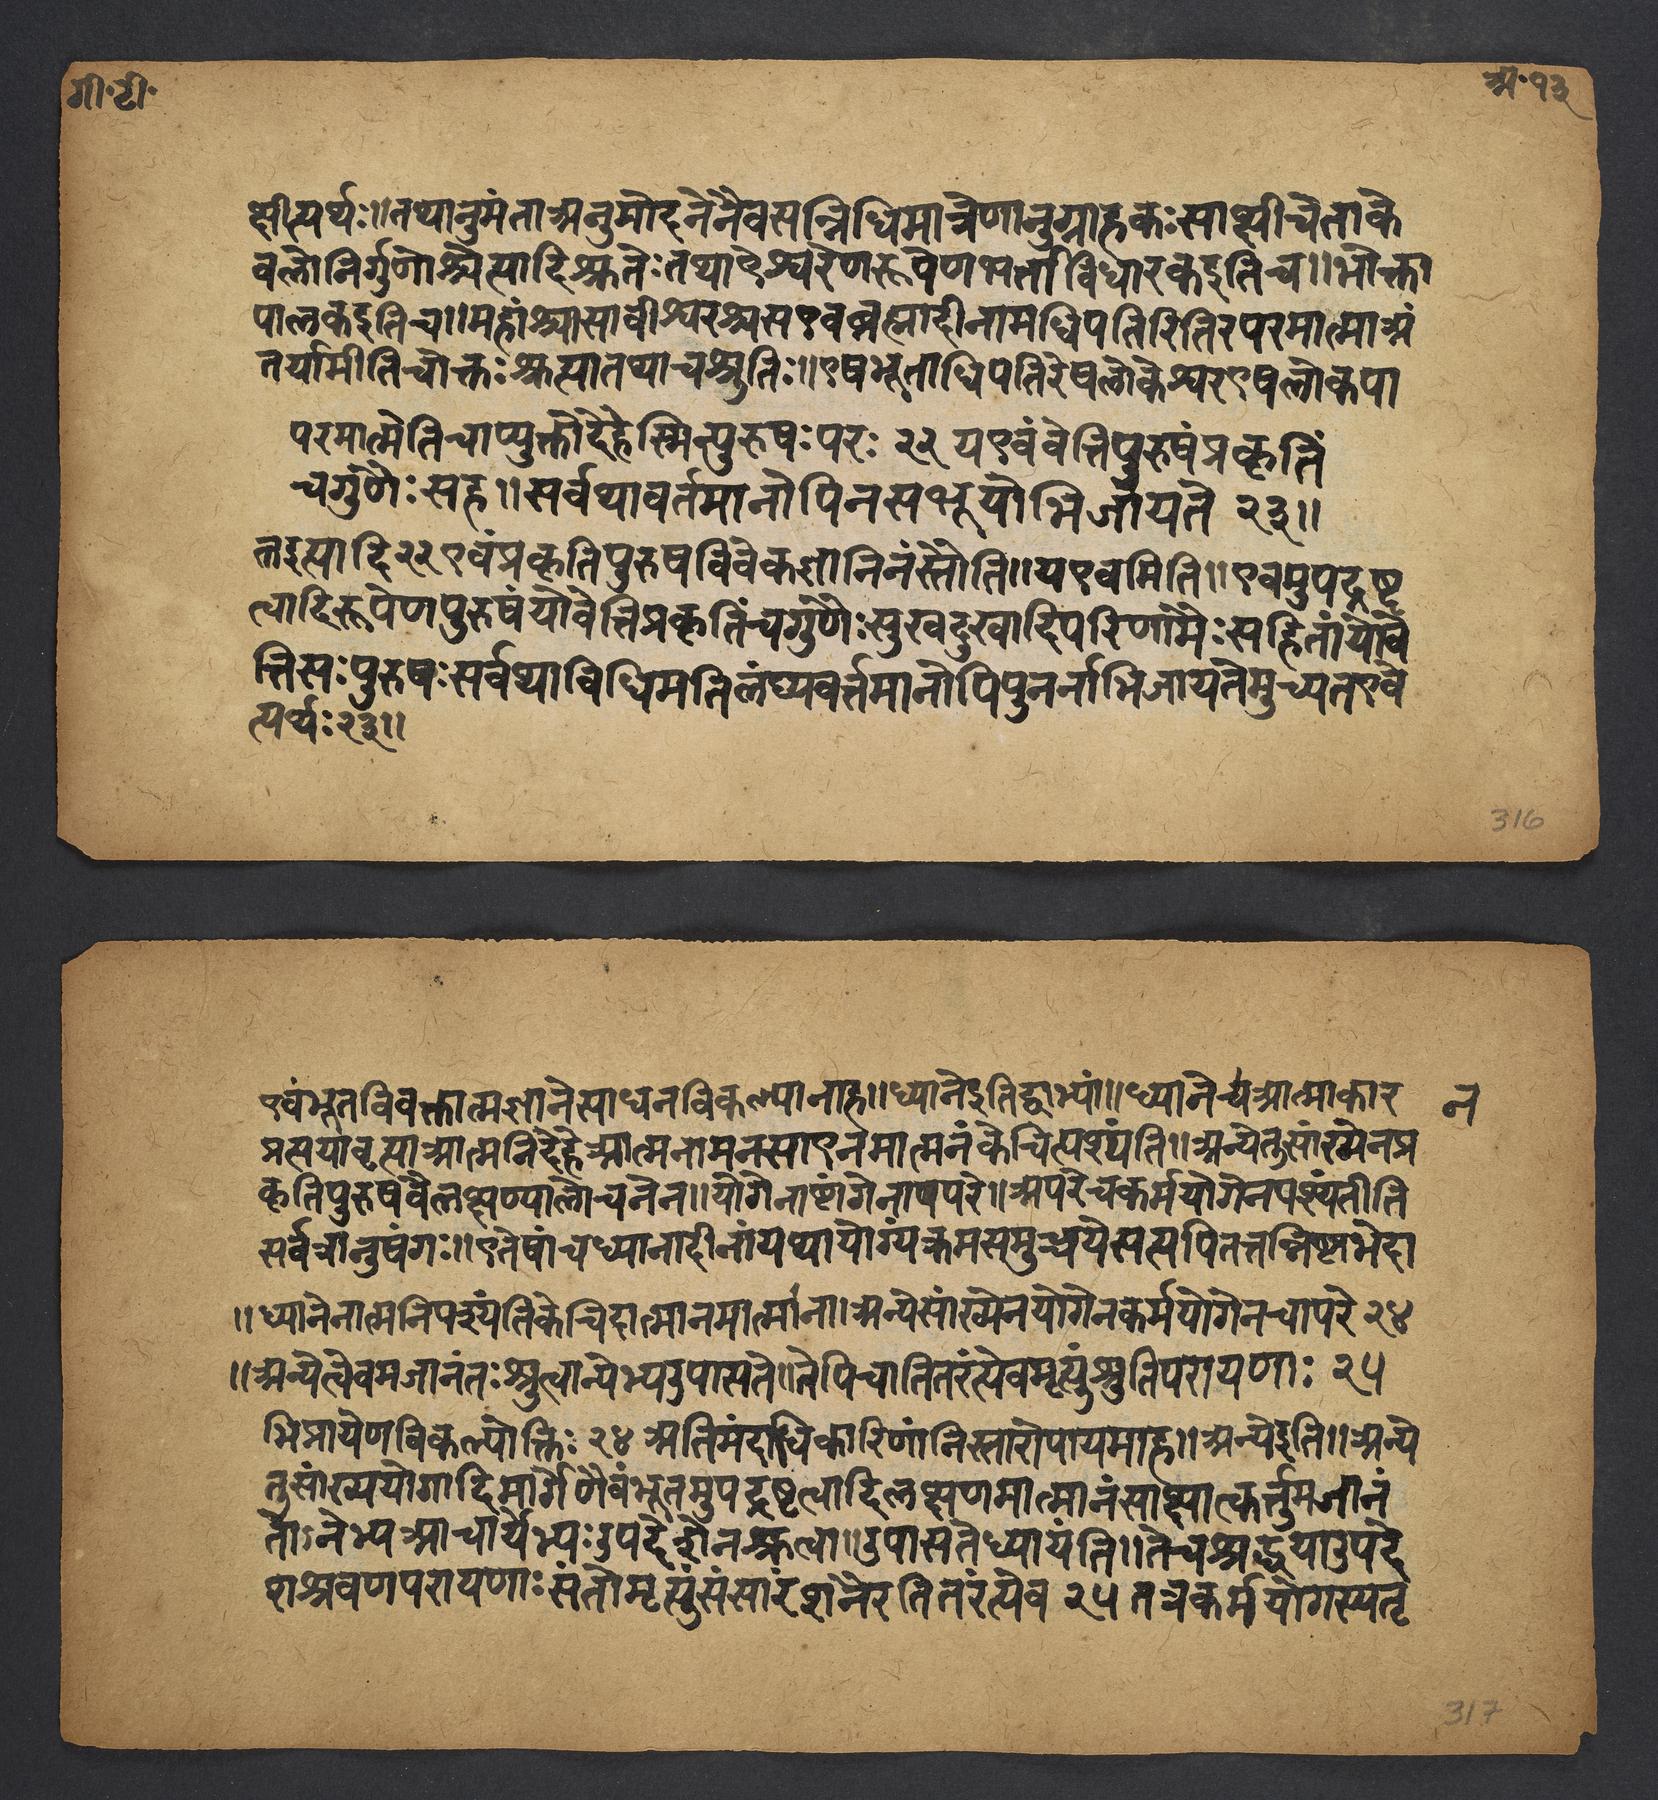 गी·टी·
अ·१३
क्षीत्यर्थः॥तथानुमंताअनुमोदनेनैवसन्निधिमात्रेणानुग्राहकःसाक्षीचेताके
वलोनिर्गुणोश्चेत्यादिश्रुतेःतथाऐश्वरेणरूपेणभर्ताविधारकइतिच॥भोक्ता
पालकइतिच॥महांश्चासावीश्वरश्चसएवब्रह्मादीनामधिपतिरितिरपरमात्माअं
तर्यामीतिचोक्तःश्रुत्यातथाचश्रुतिः॥एषभूताधिपतिरेषलोकेश्वरएषलोकपा
परमात्मेतिचाप्युक्तोदेहेस्मिन्पुरुषःपरः २२ यएवंवेत्तिपुरुषंप्रकृतिं
चगुणैःसह॥सर्वथावर्तमानोपिनसभूयोभिजायते २३॥
लइत्यादि२२एवंप्रकृतिपुरुषविवेकज्ञानिनंस्तौति॥यएवमिति॥एवमुपद्रष्टृ
त्वादिरूपेणपुरुषंयोवेत्तिप्रकृतिंचगुणैःसुखदुखादिपरिणामैःसहितांयोवे
त्तिसःपुरुषःसर्वथाविधिमतिलंघ्यवर्त्तमानोपिपुनर्नाभिजायतेमुच्यतएवे
त्यर्थः२३॥
316
एवंभूतविवक्तात्मज्ञानेसाधनविकल्पानाह॥ध्यानेइतिद्वाभ्यां॥ध्यानेचआत्माकार न
प्रसयावृत्याआत्मनिदेहेआत्मनामनसाएनमात्मनंकेचित्पश्यंति॥अन्येतुसांख्येनप्र
कृतिपुरुषवैलक्षण्यालोचनेन॥योगेनाष्टांगेनाषपरे॥अपरेचकर्मयोगेनपश्यंतीति
सर्वत्रानुषंगः॥एतेषांचध्यानादीनांयथायोग्यंक्रमसमुच्चयेसत्यपितत्तन्निष्ठाभेदा
॥ध्यानेनात्मनिपश्यंतिकेचिदात्मानमात्माना।अन्येसांख्येनयोगेनकर्मयोगेनचापरे २४
॥अन्येत्वेवमजानंतःश्रुत्वान्येभ्यउपासते॥तेपिचातितरंत्येवमृत्युंश्रुतिपरायणाः २५
भिप्रायेणविकल्पोक्तिः २४ अतिमंदाधिकारिणांनिस्तारोपायमाह॥अन्येइति॥अन्ये
तुसांख्ययोगादिमार्गेणैवंभूतमुपद्रष्टृत्वादिलक्षणमात्मानंसाक्षात्कर्त्तुमजानं
तोऽनेभ्यआचार्येभ्यःउपदेशेनश्रुत्वा॥उपासतेध्यायंति॥तेचश्रद्धयाउपदे
शश्रवणपरायणाःसंतोमृत्युंसंसारंशनैरतितरंत्येव २५ तत्रकर्मयोगस्यतृ
317